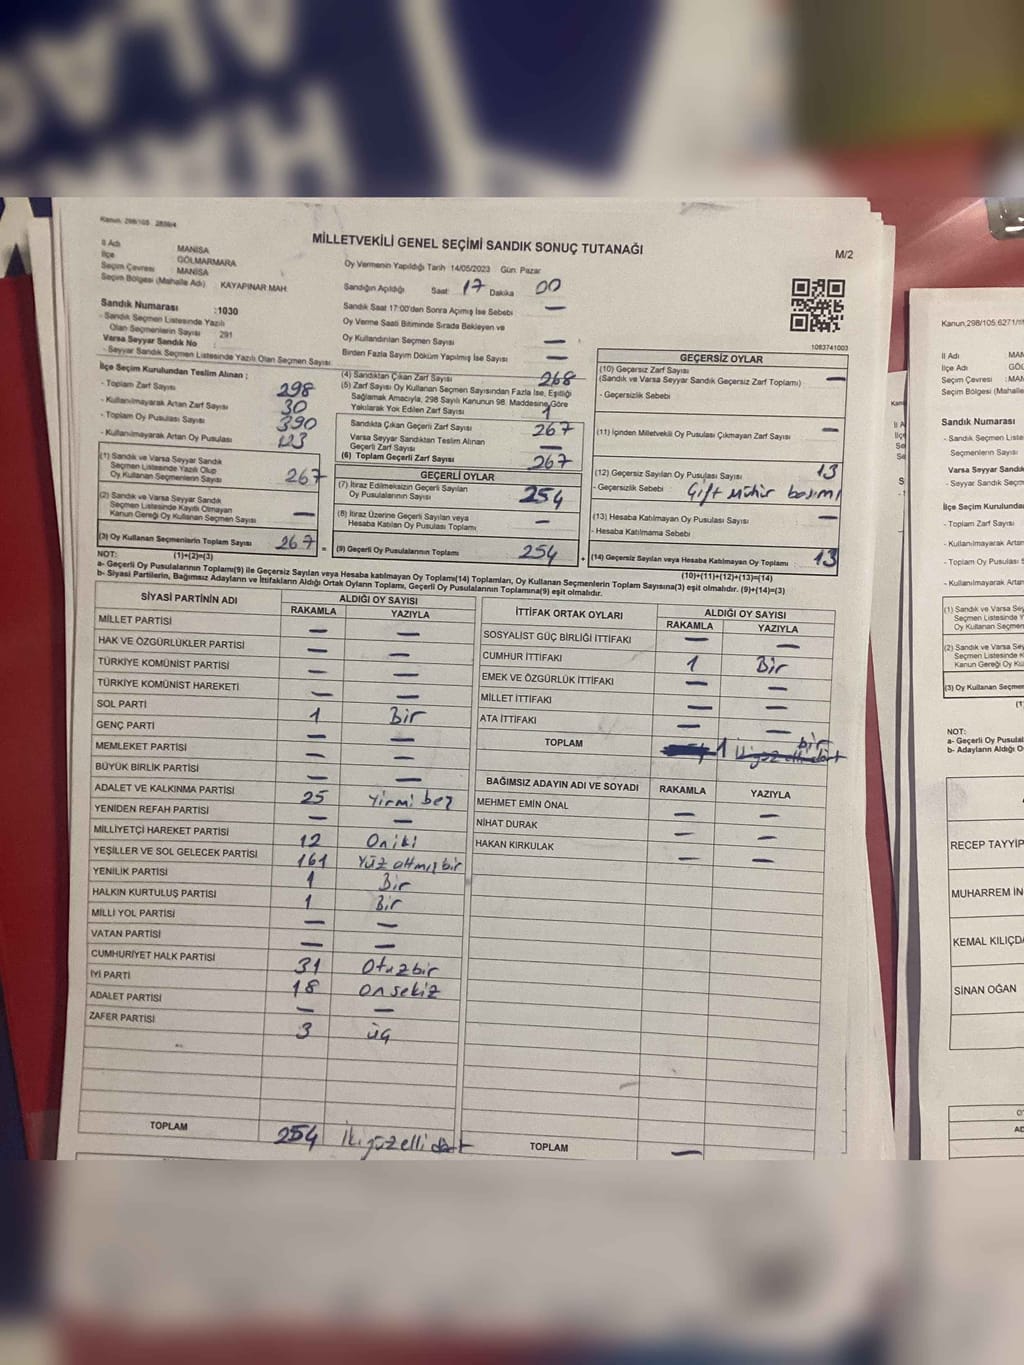 Kanun, 298/105
MİLLETVEKİLİ GENEL SEÇİMİ SANDIK SONUÇ TUTANAĞI
M/2
İl Adı : MANİSA
İlçe : GÖLMARMARA
Seçim Çevresi : MANİSA
Seçim Bölgesi (Mahalle Adı) : KAYAPINAR MAH.
Sandık Numarası : 1030
- Sandık Seçmen Listesinde Yazılı
Olan Seçmenlerin Sayısı : 291
Varsa Seyyar Sandık No :
- Seyyar Sandık Seçmen Listesinde Yazılı Olan Seçmen Sayısı :
Oy Vermenin Yapıldığı Tarih :14/05/2023 Gün: Pazar
Sandığın Açıldığı Saat: 17 Dakika 00
Sandık Saat 17:00'den Sonra Açımış İse Sebebi —
Oy Verme Saati Bitiminde Sırada Bekleyen ve
Oy Kullandırılan Seçmen Sayısı —
Birden Fazla Sayım Döküm Yapılmış İse Sayısı —
1083741003
İlçe Seçim Kurulundan Teslim Alınan ;
- Toplam Zarf Sayısı 298
- Kullanılmayarak Artan Zarf Sayısı 30
- Toplam Oy Pusulası Sayısı 390
- Kullanılmayarak Artan Oy Pusulası 123
(1) Sandık ve Varsa Seyyar Sandık
Seçmen Listesinde Yazılı Olup
Oy Kullanan Seçmen Sayısı 267
(2) Sandık ve Varsa Seyyar Sandık
Seçmen Listesinde Kayıtlı Olmayan
Kanun Gereği Oy Kullanan Seçmen Sayısı —
(3) Oy Kullanan Seçmenlerin Toplam Sayısı 267
(1)+(2)=(3)
(4) Sandıktan Çıkan Zarf Sayısı 268
(5) Zarf Sayısı Oy Kullanan Seçmen Sayısından Fazla İse, Eşitliği
Sağlamak Amacıyla, 298 Sayılı Kanunun 98. Maddesine Göre
Yakılarak Yok Edilen Zarf Sayısı 1
Sandıkta Çıkan Geçerli Zarf Sayısı 267
Varsa Seyyar Sandıktan Teslim Alınan
Geçerli Zarf Sayısı —
(6) Toplam Geçerli Zarf Sayısı 267
GEÇERLİ OYLAR
(7) İtiraz Edilmeksizin Geçerli Sayılan
Oy Pusulalarının Sayısı 254
(8) İtiraz Üzerine Geçerli Sayılan veya
Hesaba Katılan Oy Pusulası Toplamı —
= (9) Geçerli Oy Pusulalarının Toplamı 254
GEÇERSİZ OYLAR
(10) Geçersiz Zarf Sayısı
(Sandık ve Varsa Seyyar Sandık Geçersiz Zarf Toplamı) —
- Geçersizlik Sebebi
(11) İçinden Milletvekili Oy Pusulası Çıkmayan Zarf Sayısı —
(12) Geçersiz Sayılan Oy Pusulası Sayısı 13
- Geçersizlik Sebebi Çift mühür basımı
(13) Hesaba Katılmayan Oy Pusulası Sayısı —
- Hesaba Katılmama Sebebi
+ (14) Geçersiz Sayılan veya Hesaba Katılmayan Oy Toplamı 13
(10)+(11)+(12)+(13)=(14)
NOT:
a- Geçerli Oy Pusulalarının Toplamı(9) ile Geçersiz Sayılan veya Hesaba katılmayan Oy Toplam(14) Toplamları, Oy Kullanan Seçmenlerin Toplam Sayısına(3) eşit olmalıdır. (9)+(14)=(3)
b- Siyasi Partilerin, Bağımsız Adayların ve İttifakların Aldığı Ortak Oyların Toplamı, Geçerli Oy Pusulalarının Toplamına(9) eşit olmalıdır.
SİYASİ PARTİNİN ADI ALDIĞI OY SAYISI
RAKAMLA YAZIYLA
MİLLET PARTİSİ — —
HAK VE ÖZGÜRLÜKLER PARTİSİ — —
TÜRKİYE KOMÜNİST PARTİSİ — —
TÜRKİYE KOMÜNİST HAREKETİ — —
SOL PARTİ 1 Bir
GENÇ PARTİ — —
MEMLEKET PARTİSİ — —
BÜYÜK BİRLİK PARTİSİ — —
ADALET VE KALKINMA PARTİSİ 25 Yirmi beş
YENİDEN REFAH PARTİSİ — —
MİLLİYETÇİ HAREKET PARTİSİ 12 Oniki
YEŞİLLER VE SOL GELECEK PARTİSİ 161 Yüz altmış bir
YENİLİK PARTİSİ 1 Bir
HALKIN KURTULUŞ PARTİSİ 1 Bir
MİLLİ YOL PARTİSİ — —
VATAN PARTİSİ — —
CUMHURİYET HALK PARTİSİ 31 Otuzbir
İYİ PARTİ 18 Onsekiz
ADALET PARTİSİ — —
ZAFER PARTİSİ 3 üç
TOPLAM 254 İkiyüzelli dört
İTTİFAK ORTAK OYLARI ALDIĞI OY SAYISI
RAKAMLA YAZIYLA
SOSYALİST GÜÇ BİRLİĞİ İTTİFAKI — —
CUMHUR İTTİFAKI 1 Bir
EMEK VE ÖZGÜRLÜK İTTİFAKI — —
MİLLET İTTİFAKI — —
ATA İTTİFAKI — —
TOPLAM 1 bir
BAĞIMSIZ ADAYIN ADI VE SOYADI RAKAMLA YAZIYLA
MEHMET EMİN ÖNAL — —
NİHAT DURAK — —
HAKAN KIRKULAK — —
TOPLAM —
Kanun,298/105,6271/
İl Adı : MAN
İlçe Adı : GÖL
Seçim Çevresi : MAN
Seçim Bölgesi (Mahalle
Sandık Numarası
- Sandık Seçmen Liste
Seçmenlerin Sayısı
Varsa Seyyar Sandık
- Seyyar Sandık Seçmen
İlçe Seçim Kurulundan
- Toplam Zarf Sayısı
- Kullanılmayarak Artan
- Toplam Oy Pusulası S
- Kullanılmayarak Artan
(1) Sandık ve Varsa Sey
Seçmen Listesinde Y
Oy Kullanan Seçmen
(2) Sandık ve Varsa Sey
Seçmen Listesinde K
Kanun Gereği Oy Kul
(3) Oy Kullanan Seçmen
NOT:
a- Geçerli Oy Pusulal
b- Adayların Aldığı O
RECEP TAYYİP
MUHARREM İN
KEMAL KILIÇDA
SİNAN OĞAN